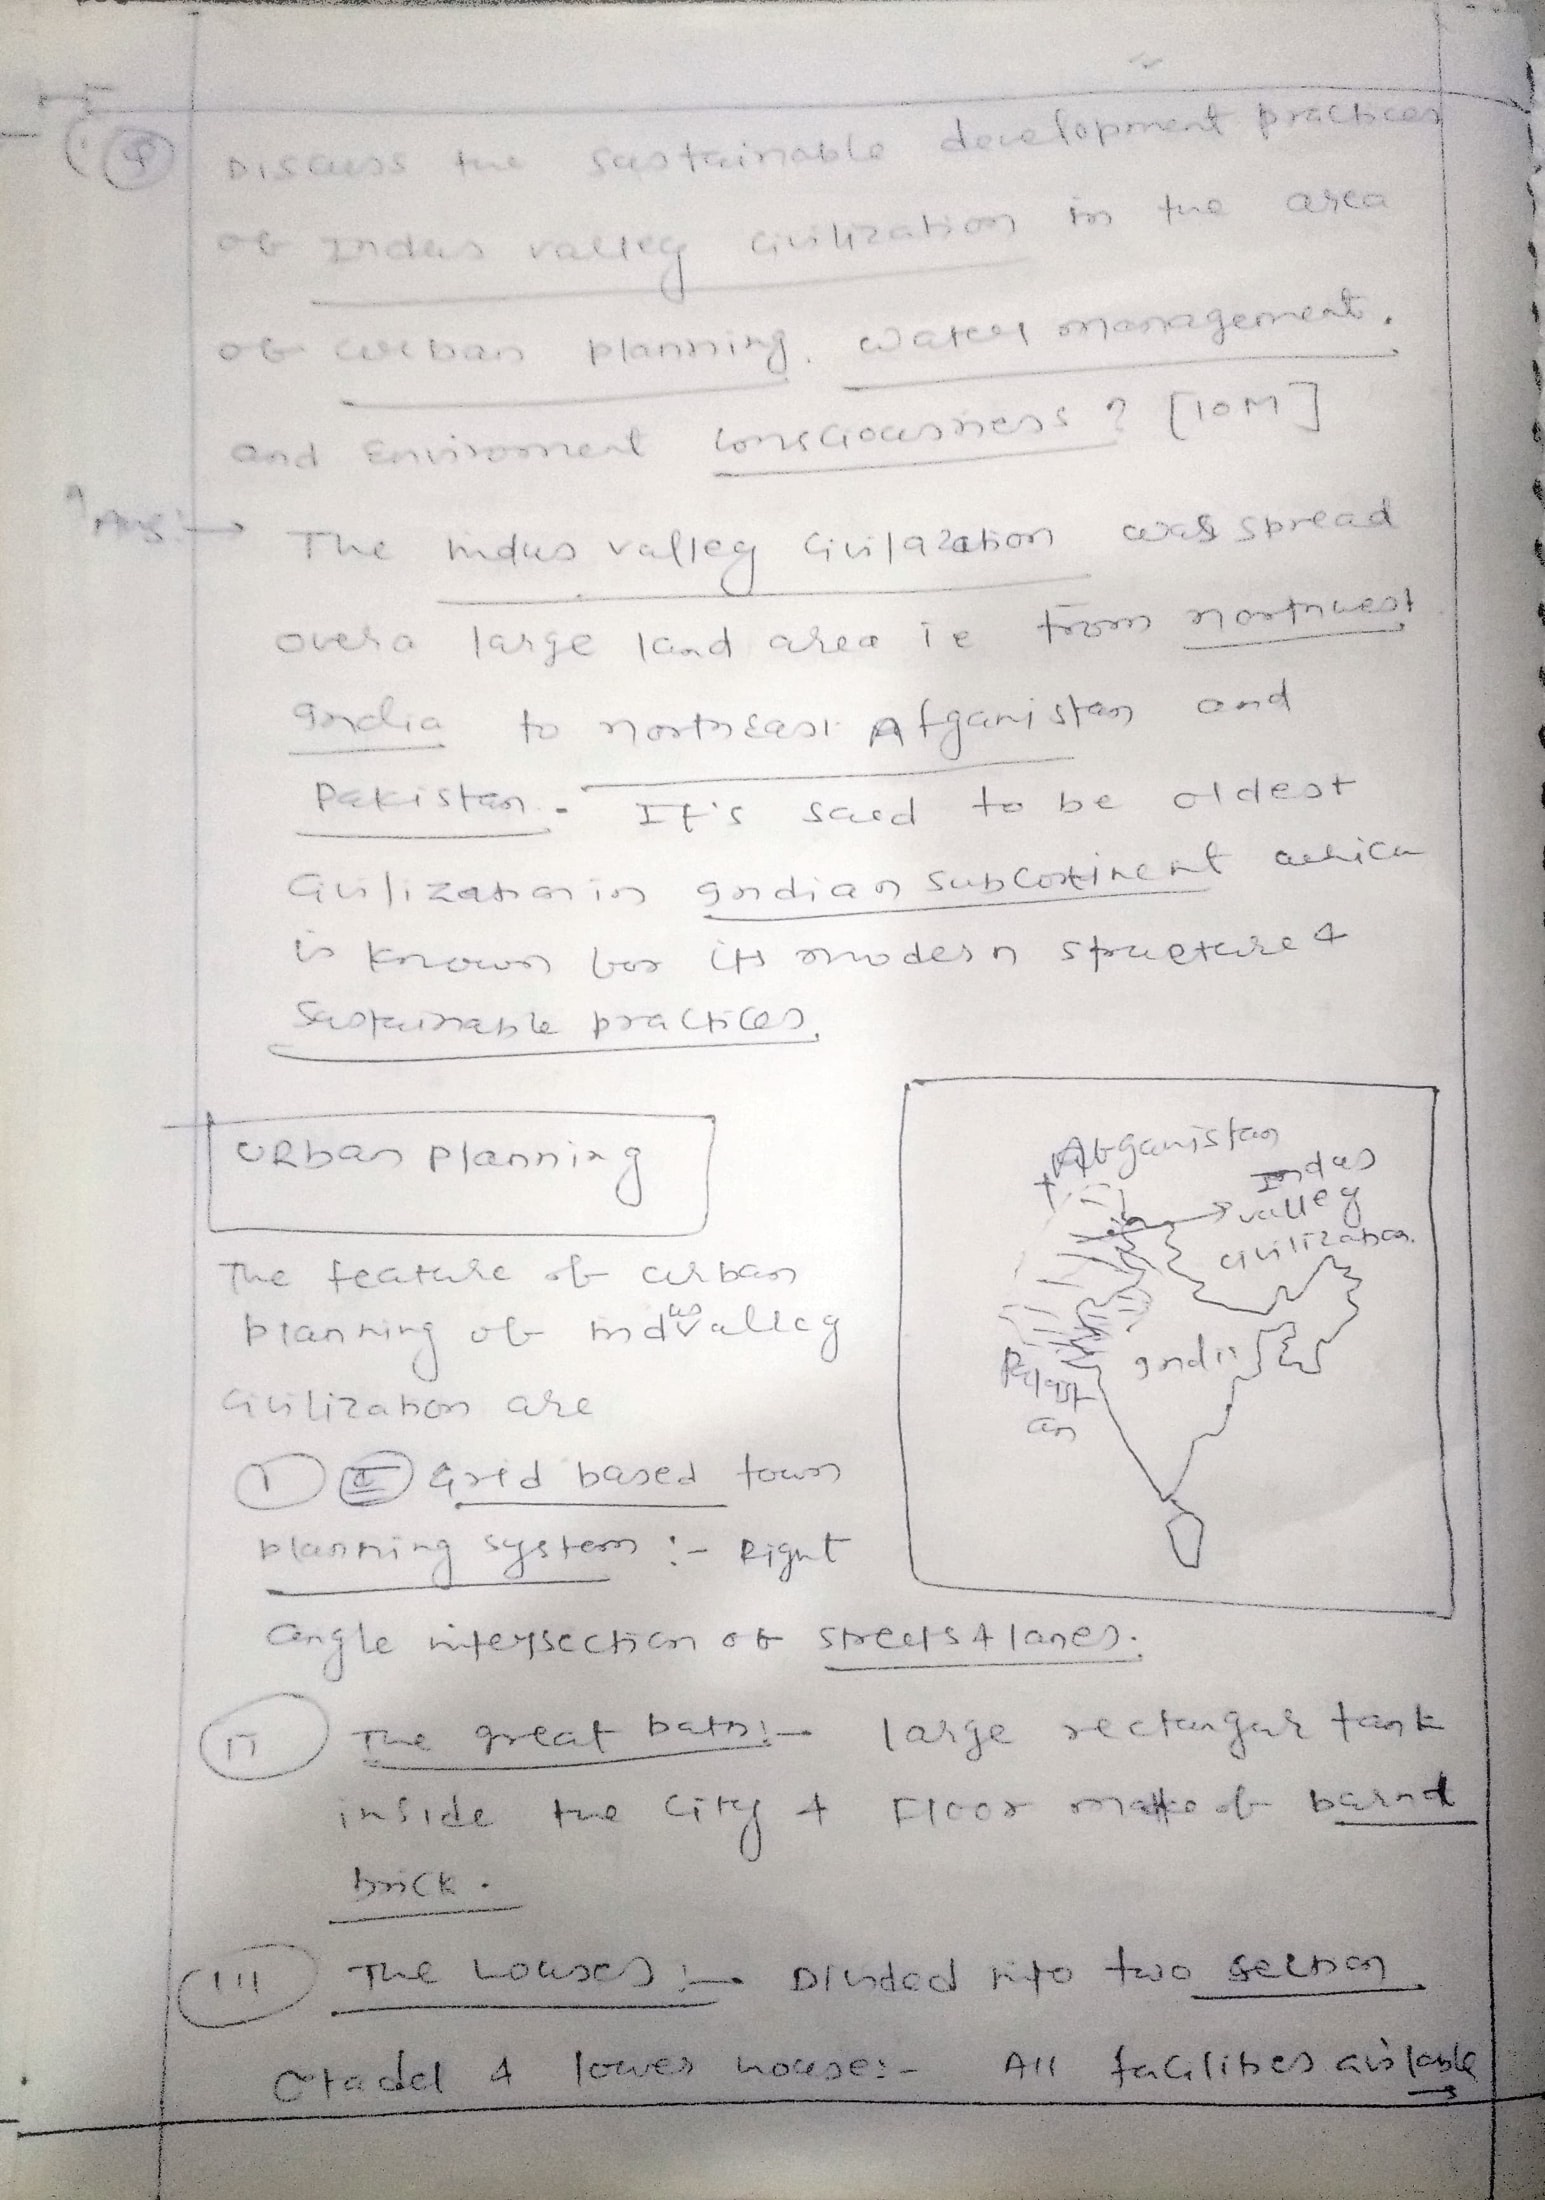 Discuss the sustainable development practices
of Indus valley civilization in the area
of urban planning, water management,
and Enviroment consciousness ? [10M]
Ans:→ The indus valley Civilazation was spread
over a large land area ie from northwest
India to northeast Afganistan and
Pakistan. It's said to be oldest
Civilization in Indian subcontinent which
is known for its modern structure &
Sustainable practices.
URban planning
The feature of urban
planning of indus valley
civilization are
I Grid based town
planning system :- Right
angle intersection of streets & lanes.
II The great bath:- large rectangar tank
inside the city & Floor make of barnt
brick.
III The houses :- Divided into two section
Citadel & lower house:- All facilities avilable
Afganistan
Indus
valley
civilization.
India
Pakist
an